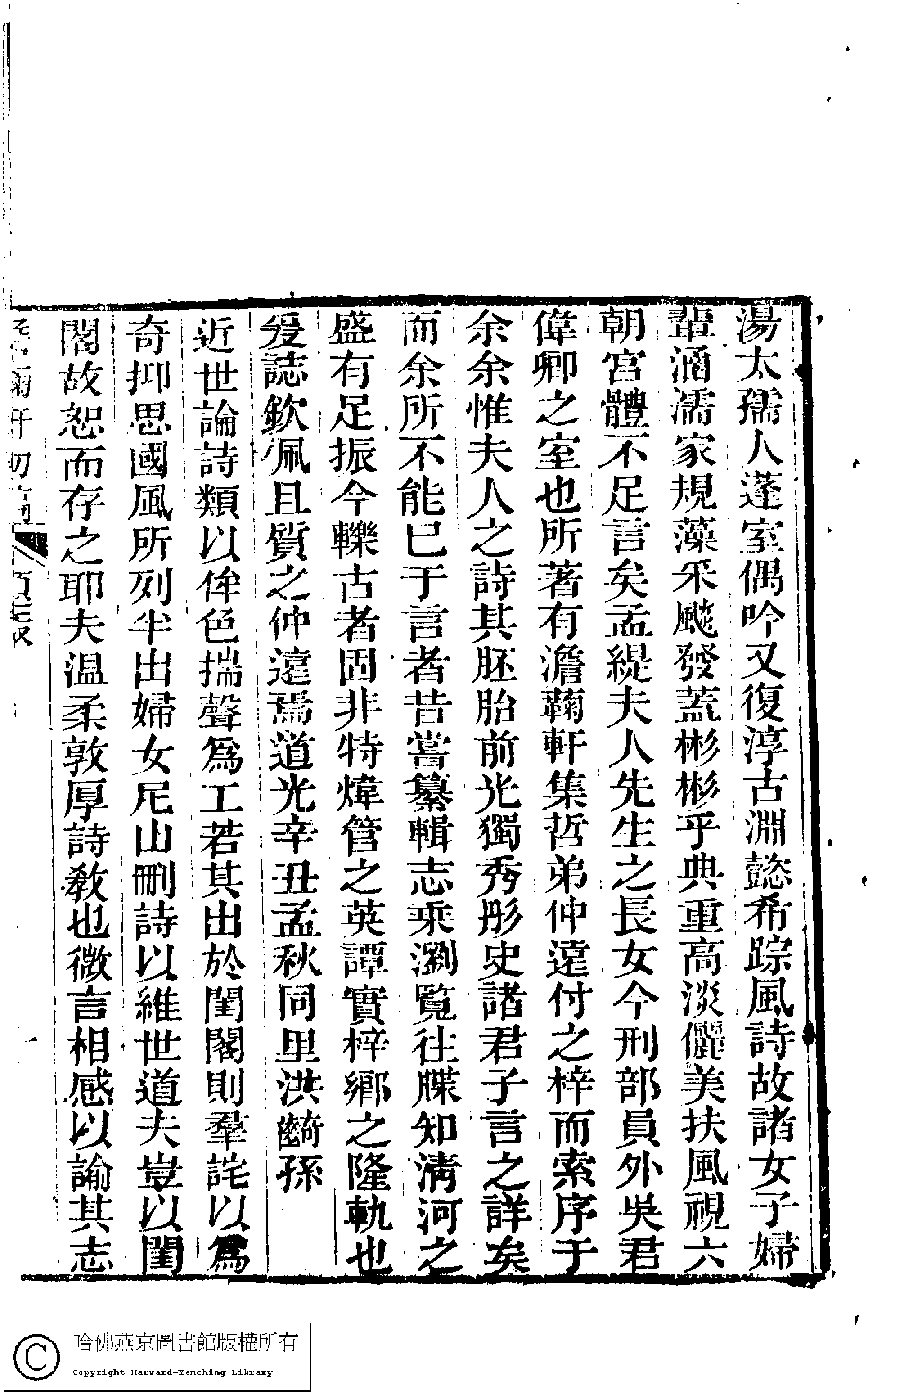 湯太孺人蓬室偶吟又復淳古淵懿希踪風詩故諸女子婦
輩涵濡家規藻釆飈發蓋彬彬乎典重高淡儷美扶風視六
朝宮體不足言矣孟緹夫人先生之長女今刑部員外吳君
偉卿之室也所著有澹蘜軒集哲弟仲遠付之梓而索序于
余余惟夫人之詩其胚胎前光獨秀彤史諸君子言之詳矣
而余所不能已于言者昔嘗纂輯志乘瀏覧往牒知淸河之
盛有足振今轢古者固非特煒管之英譚實梓鄉之隆軌也
爰誌欽佩且質之仲遠焉道光辛丑孟秋同里洪齮孫
近世論詩類以侔色揣聲爲工若其出於閨閣則羣詫以爲
奇抑思國風所列半出婦女尼山刪詩以維世道夫豈以閨
閣故恕而存之耶夫溫柔敦厚詩敎也微言相感以諭其志
軒初
哈佛燕京圖書館版權所有
Copyright Harvard-Yenching Library